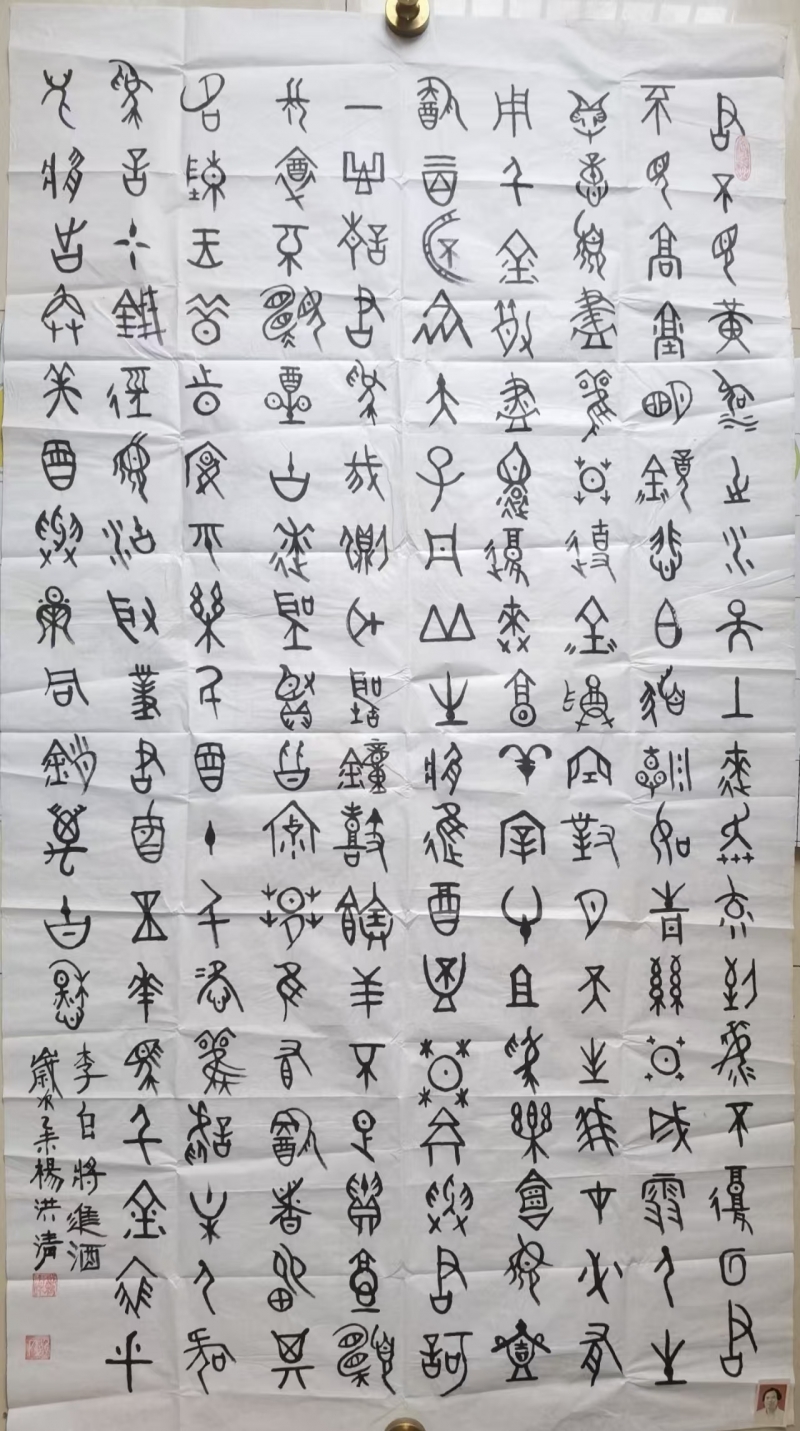 君不見黃河之水天上來奔流到海不復回君
不見高堂明鏡悲白髮朝如青絲暮成雪人生
得意須盡歡莫使金樽空對月天生我材必有
用千金散盡還復來烹羊宰牛且為樂會須
飲三百杯岑夫子丹丘生將進酒杯莫停與君歌
一曲請君為我側耳聽鐘鼓饌玉不足貴但願
長醉不願醒古來聖賢皆寂寞惟有飲者留其
名陳王昔時宴平樂斗酒十千恣歡謔主人何
為言少錢徑須沽取對君酌五花馬千金裘呼
兒將出換美酒與爾同銷萬古愁
李白將進酒
歲次乙未楊洪清